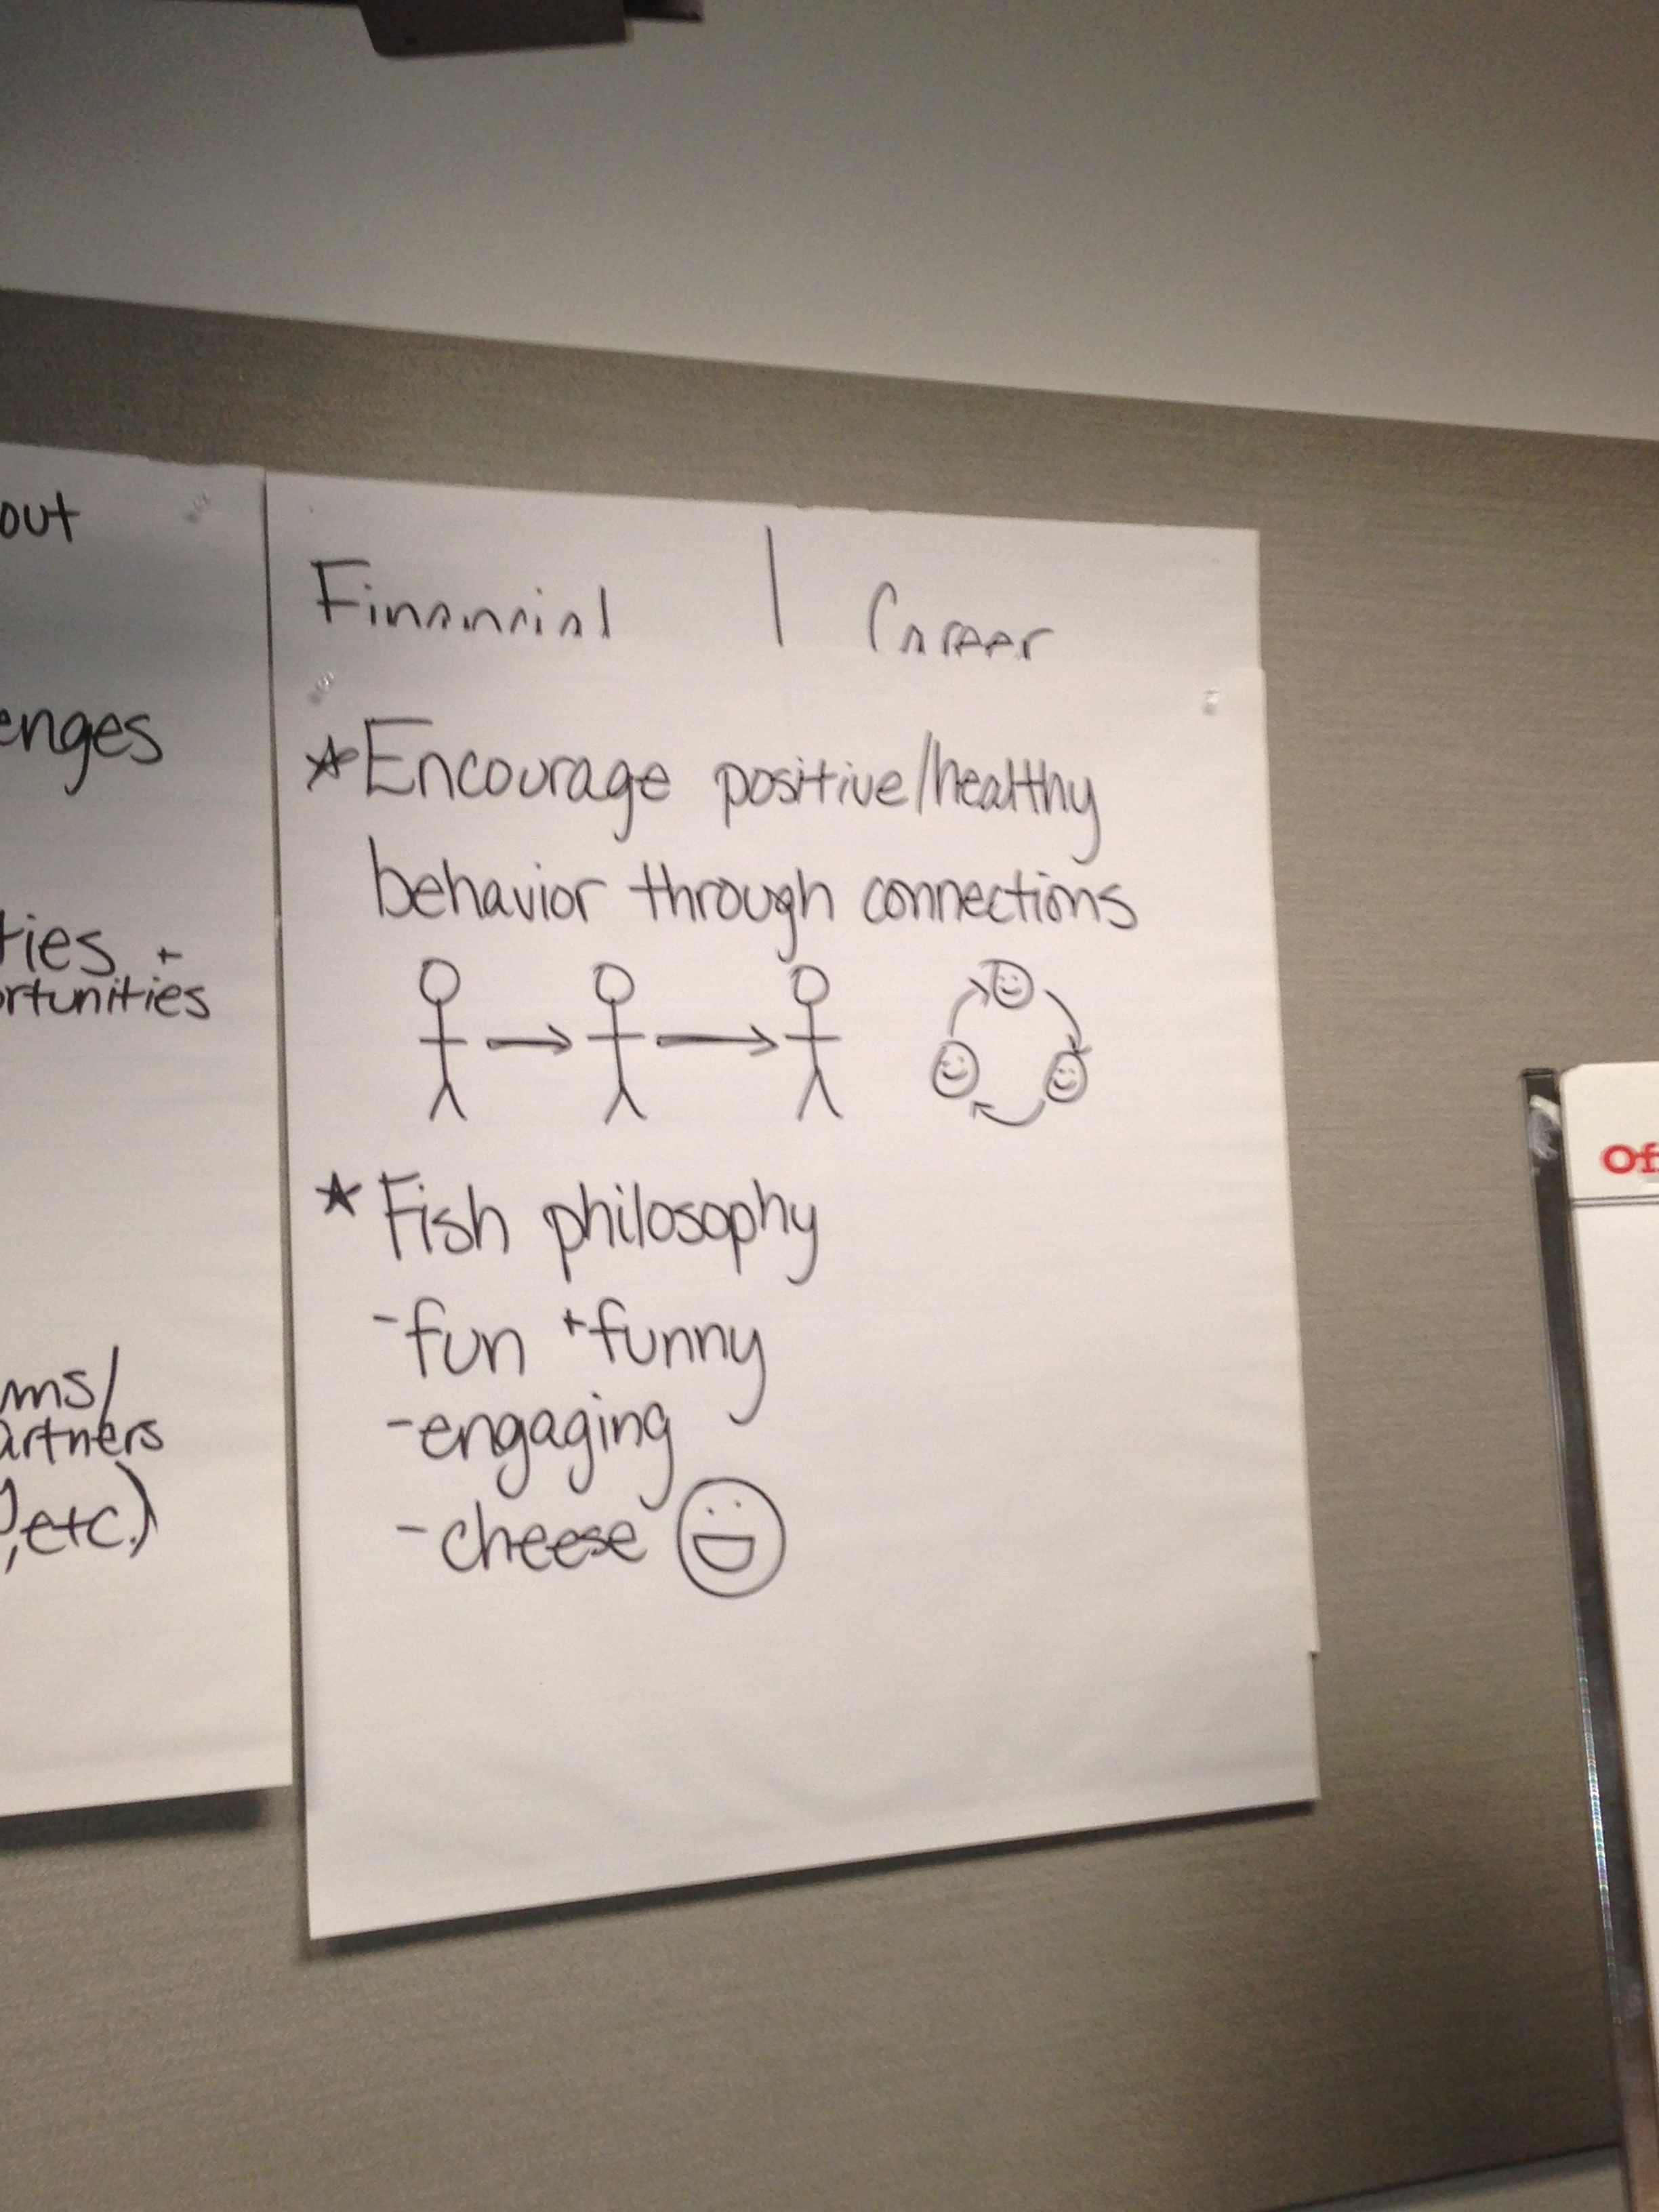 out
enges
ties +
ortunities
ms/
artners
,etc.)
Financial | Career
*Encourage positive/healthy
behavior through connections
* Fish philosophy
-fun + funny
-engaging
-cheese
Of